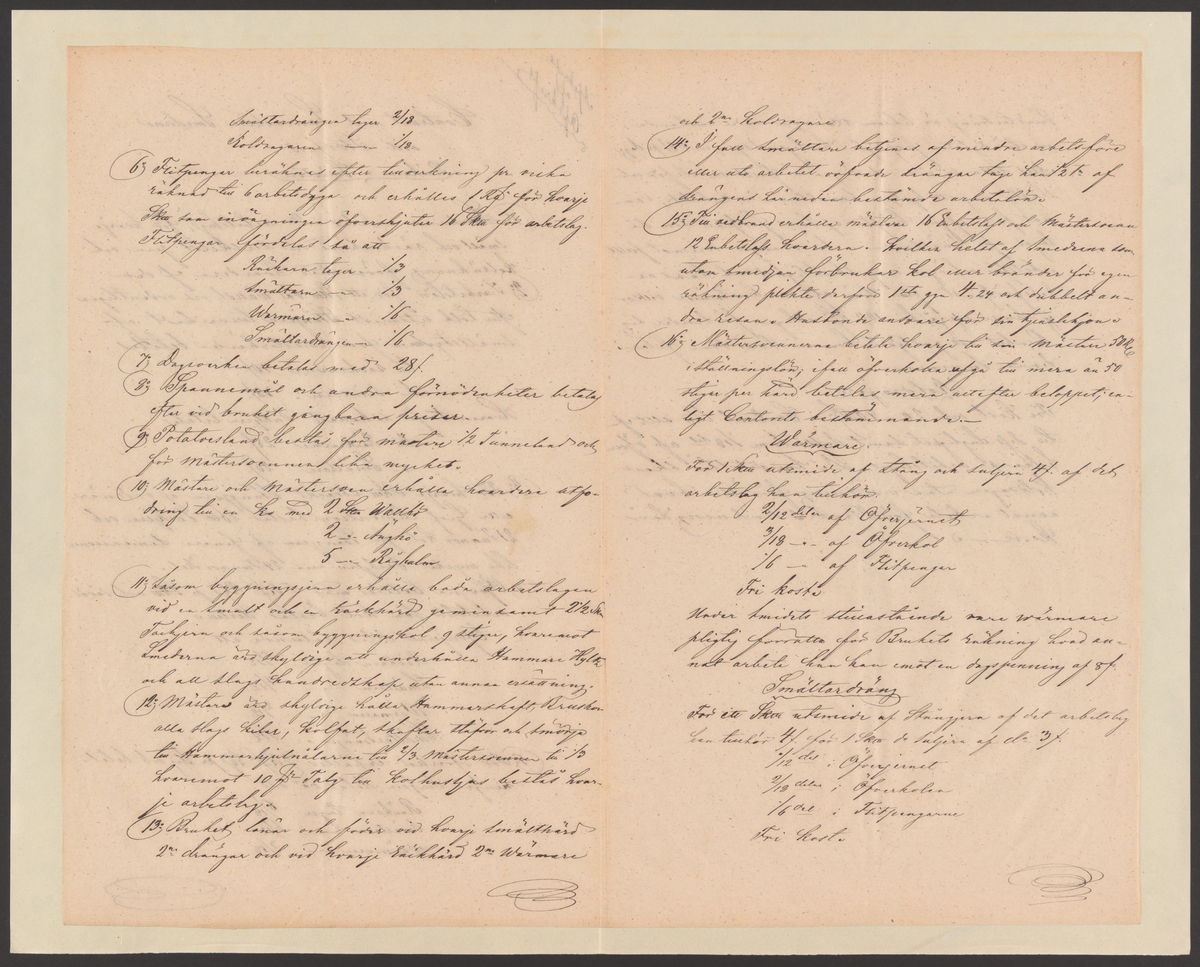 Smältardrängen tager 2/18
Koldragaren — 1/18
6) Flitpengar beräknas efter tillverkning pr vecka
räknad till 6 arbetsdygn och erhålles 1 Rd för hvarje
Sk℔ som invägningen öfverskjuter 16 Sk℔ för arbetslag.
Flitpengar fördelas så att
Räckarn tager 1/3
Smältarn — 1/3
Warmaren — 1/6
Smältardrängen — 1/6.
7) Dagsverken betalas med 28/.
8) Spannemål och andra förnödenheter betalas
efter vid bruket gångbara priser.
9) Potatoesland bestås för mästare 1/2 Tunneland och
för Mästersvennen lika mycket.
10) Mästare och Mästersven erhålla hvardera utfo-
dring till en ko med 2 St℔ Wallhö
2 — Änghö
5 — Råghalm
11) Såsom byggningsjern erhålla båda arbetslagen
vid en smält och en Räckhärd gemensamt 2 1/2 Sk℔
Tackjern och såsom byggningskol 9 stiger, hvaremot
Smederna äro skyldige att underhålla Hammare Hylsa
och all slags handredskap utan annan ersättning.
12) Mästare äro skyldige hålla Hammarskaft, Bruskor
alla slags kilar, kolfat, skaftar släfvor och smörja
till Hammarhjulnålarne till 2/3 Mästersvenner till 1/3
hvaremot 10 ℔ Talg till kolhusljus bestås hvar-
je arbetslag.
13) Bruket lönar och föder vid hvarje smälthärd
2ne drängar och vid hvarje Räckhärd 2ne Wärmare
och 2ne Koldragare
14) I fall Smältare betjenas af mindre arbetsföre
eller uti arbetet oöfvade drängar tage han af
drängens här nedan bestämde arbetslön.
15) Till vedbrand erhålla mästare 16 Enbetslass och Mästersven
12 Enbetslass hvardera. Hvilken helst af Smederna som
utom smedjan förbrukar kol eller bränder för egen
räkning plikte derföre 1sta ggn 4.24 och dubbelt an-
dra resan. Husbonde ansvare för sin tjenstehjon.
16) Mästersvennerna betala hvarje till sin Mästare 50 Rd
i ställningslön, i fall öfverkolen utgå till mera än 50
stiger per härd betalas mera alltefter beloppet, en-
ligt Contorets bestämmande.—
Warmare
För 1 Sk℔ utsmide af Stång och Saljern 4/. af det
arbetslag han tillhör.
2/12 delar af Öfverjernet
3/18 — af Öfverkol
1/6 — af Flitpengar
Fri kost.
Under smidets stillastående vare wärmare
pligtig förrätta för Brukets räkning hvad an-
nat arbete han kan emot en dagspenning af 8/.
Smältardräng
För ett Sk℔ utsmide af Stångjern af det arbetslag
han tillhör 4/. för 1 Sk℔ do saljern af do 3/.
2/12 del i Öfverjernet
2/18 delar i Öfverkolen
1/6 del i Flitpengarne
Fri kost.